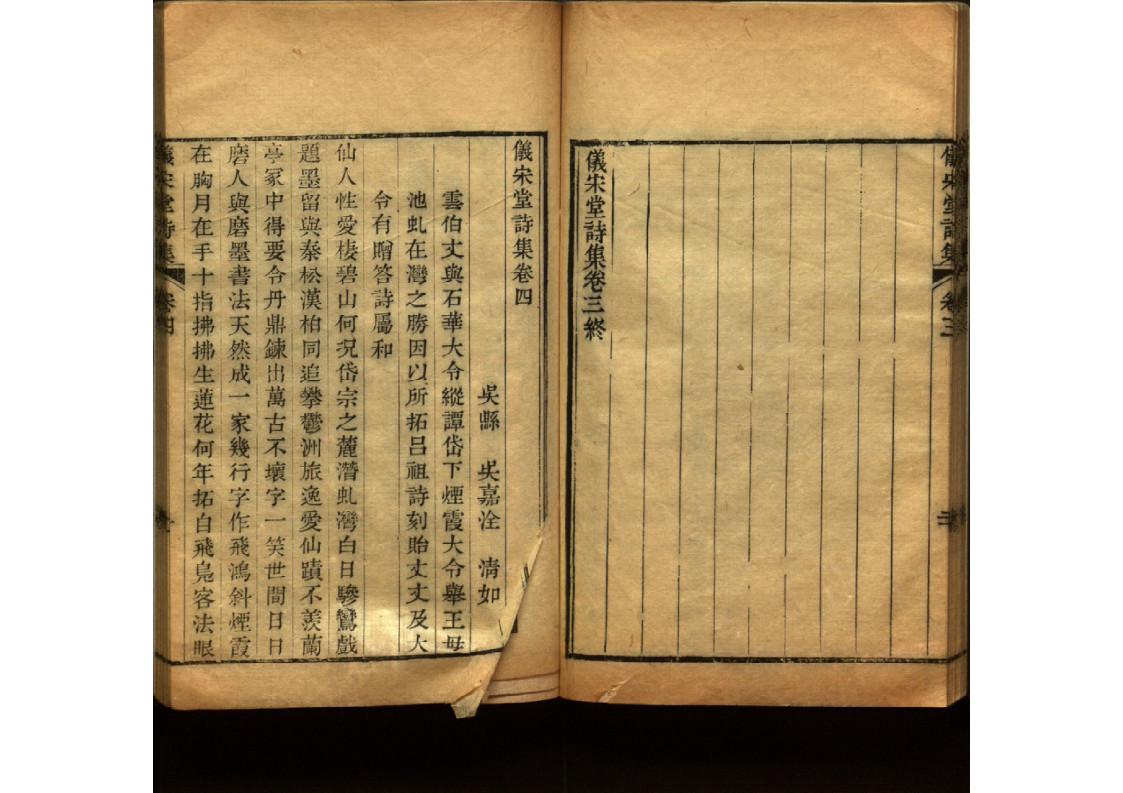 儀宋堂詩集 卷三 二
儀宋堂詩集卷三終
儀宋堂詩集卷四
吳縣 吳嘉洤 清如
雲伯丈與石華大令縱譚岱下煙霞大令舉王母
池虬在灣之勝因以所拓呂祖詩刻貽丈丈及大
令有贈答詩屬和
仙人性愛棲碧山何況岱宗之麓潛虬灣白日驂鸞戲
題墨留與秦松漢柏同追攀鬱洲旅逸愛仙蹟不羨蘭
亭冢中得要令丹鼎鍊出萬古不壞字一笑世間日日
磨人與磨墨書法天然成一家幾行字作飛鴻斜煙霞
在胸月在手十指拂拂生蓮花何年拓自飛鳧客法眼
儀宋堂詩集 卷四